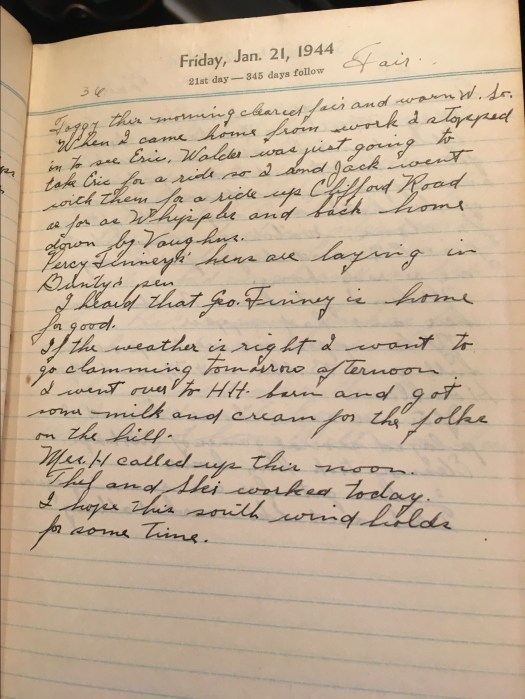 Friday, Jan. 21, 1944
21st day — 345 days follow
Fair.
36
Foggy this morning cleared fair and warm W. So.
When I came home from work I stopped
in to see Eric. Walder was just going to
take Eric for a ride so I and Jack went
with them for a ride up Clifford Road
as far as Whipples and back home
down by Vaughns.
Percy Finneys' hens are laying in
Bunty's pen
I heard that Geo. Finney is home
for good.
If the weather is right I want to
go clamming tomorrow afternoon.
I went over to H.H. barn and got
some milk and cream for the folks
on the hill.
Mrs. H called up this noon.
and Ski worked today.
I hope this south wind holds
for some time.